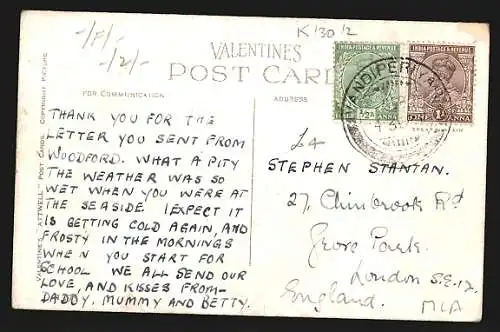 -/P/-
-/2/-
K'30/2
VALENTINES
POST CARD
FOR COMMUNICATION
ADDRESS
VALENTINE'S "ATTWELL" POST CARDS. COPYRIGHT PICTURE
INDIA POSTAGE & REVENUE
INDIA POSTAGE & REVENUE
½A
ANNA
ONE 1A ANNA
THANK YOU FOR THE
LETTER YOU SENT FROM
WOODFORD. WHAT A PITY
THE WEATHER WAS SO
WET WHEN YOU WERE AT
THE SEASIDE. I EXPECT IT
IS GETTING COLD AGAIN, AND
FROSTY IN THE MORNINGS
WHEN YOU START FOR
SCHOOL. WE ALL SEND OUR
LOVE, AND KISSES FROM-
DADDY, MUMMY AND BETTY.
STEPHEN STANTAN.
27, Chinbrook Rd
Grove Park.
London S.E.12.
England.